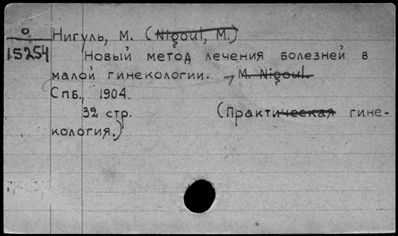 О
15254
Нигуль, М. (Nigoul, M.)
Новый метод лечения болезней в
малой гинекологии. M. Nigoul.
Спб., 1904.
32 стр. (Практическая гине-
кология.)